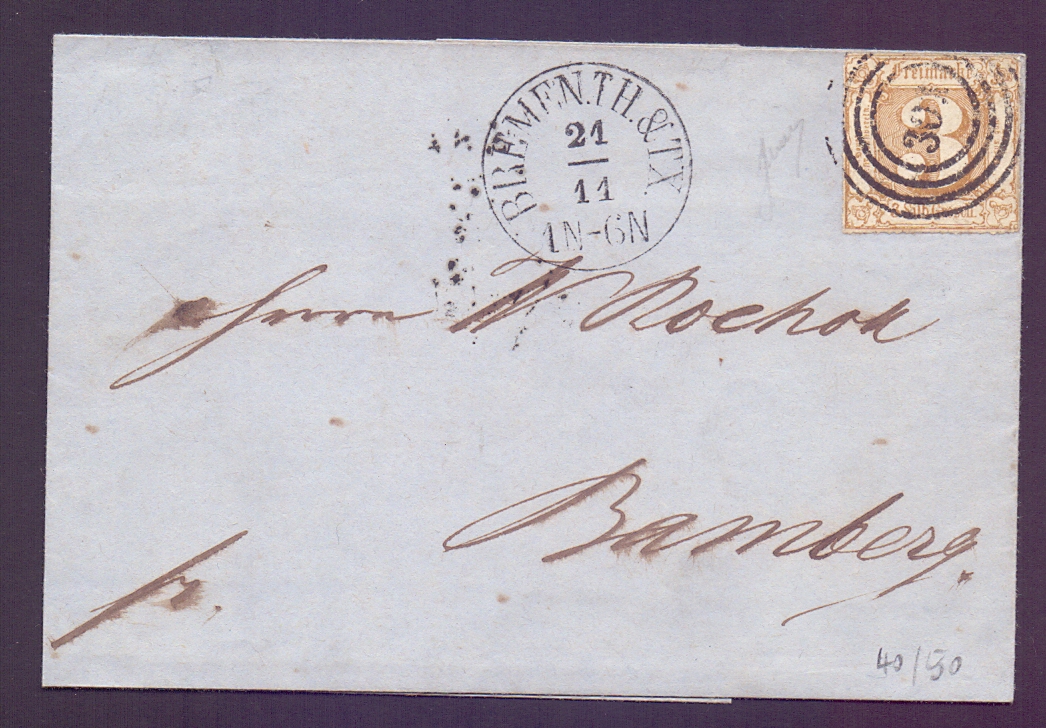 BREMEN.TH.&TX
21
11
1N-6N
Freimarke
3
301
Herrn W Rochok
Bamberg.
fr.
40/50